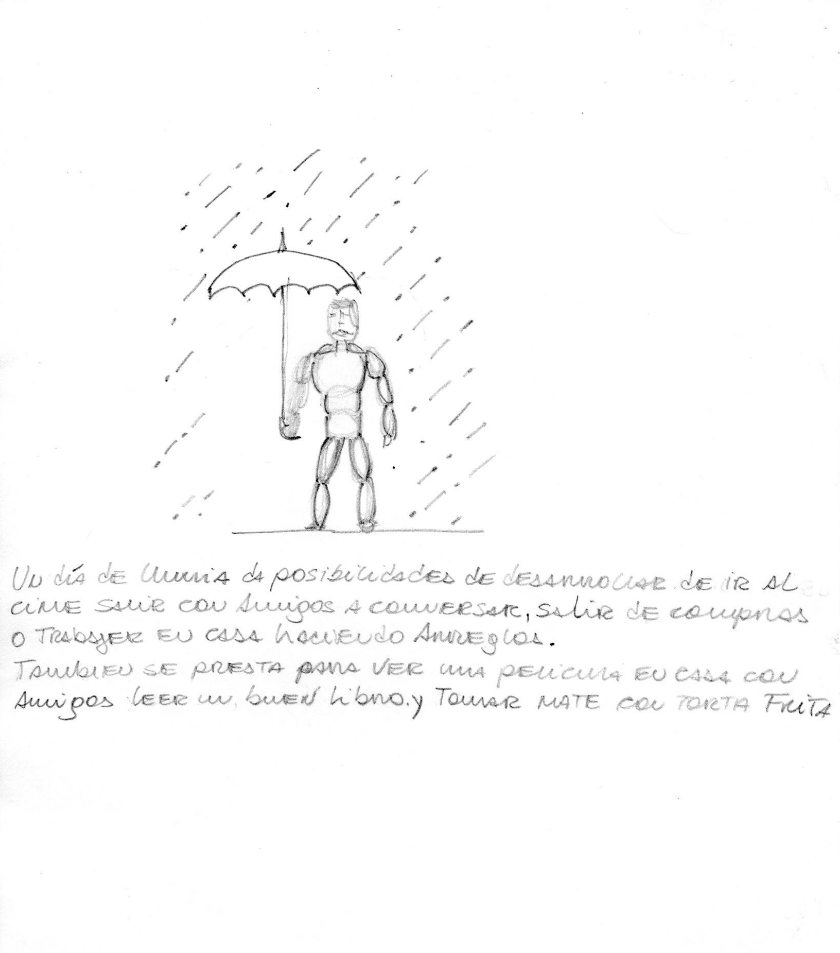 Un día de lluvia da posibilidades de desarrollar de ir al
cine salir con Amigos a conversar, salir de compras
o Trabajer en casa haciendo Arreglos.
Tambien se presta para ver una pelicula en casa con
Amigos leer un buen libro. y Tomar mate con torta Frita